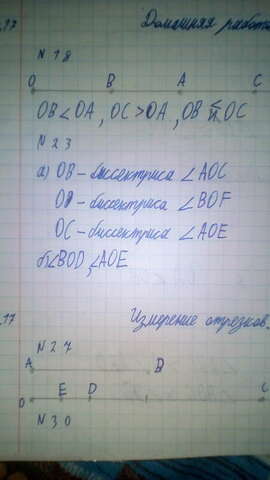 .17 Домашняя работа
N 18
O B A C
OB < OA, OC > OA, OB < OC
и
N 23
а) OB - биссектриса ∠AOC
OD - биссектриса ∠BOF
OC - биссектриса ∠AOE
б) ∠BOD, ∠AOE
.17 Измерение отрезков.
N 27
A B
O E D C
N 30